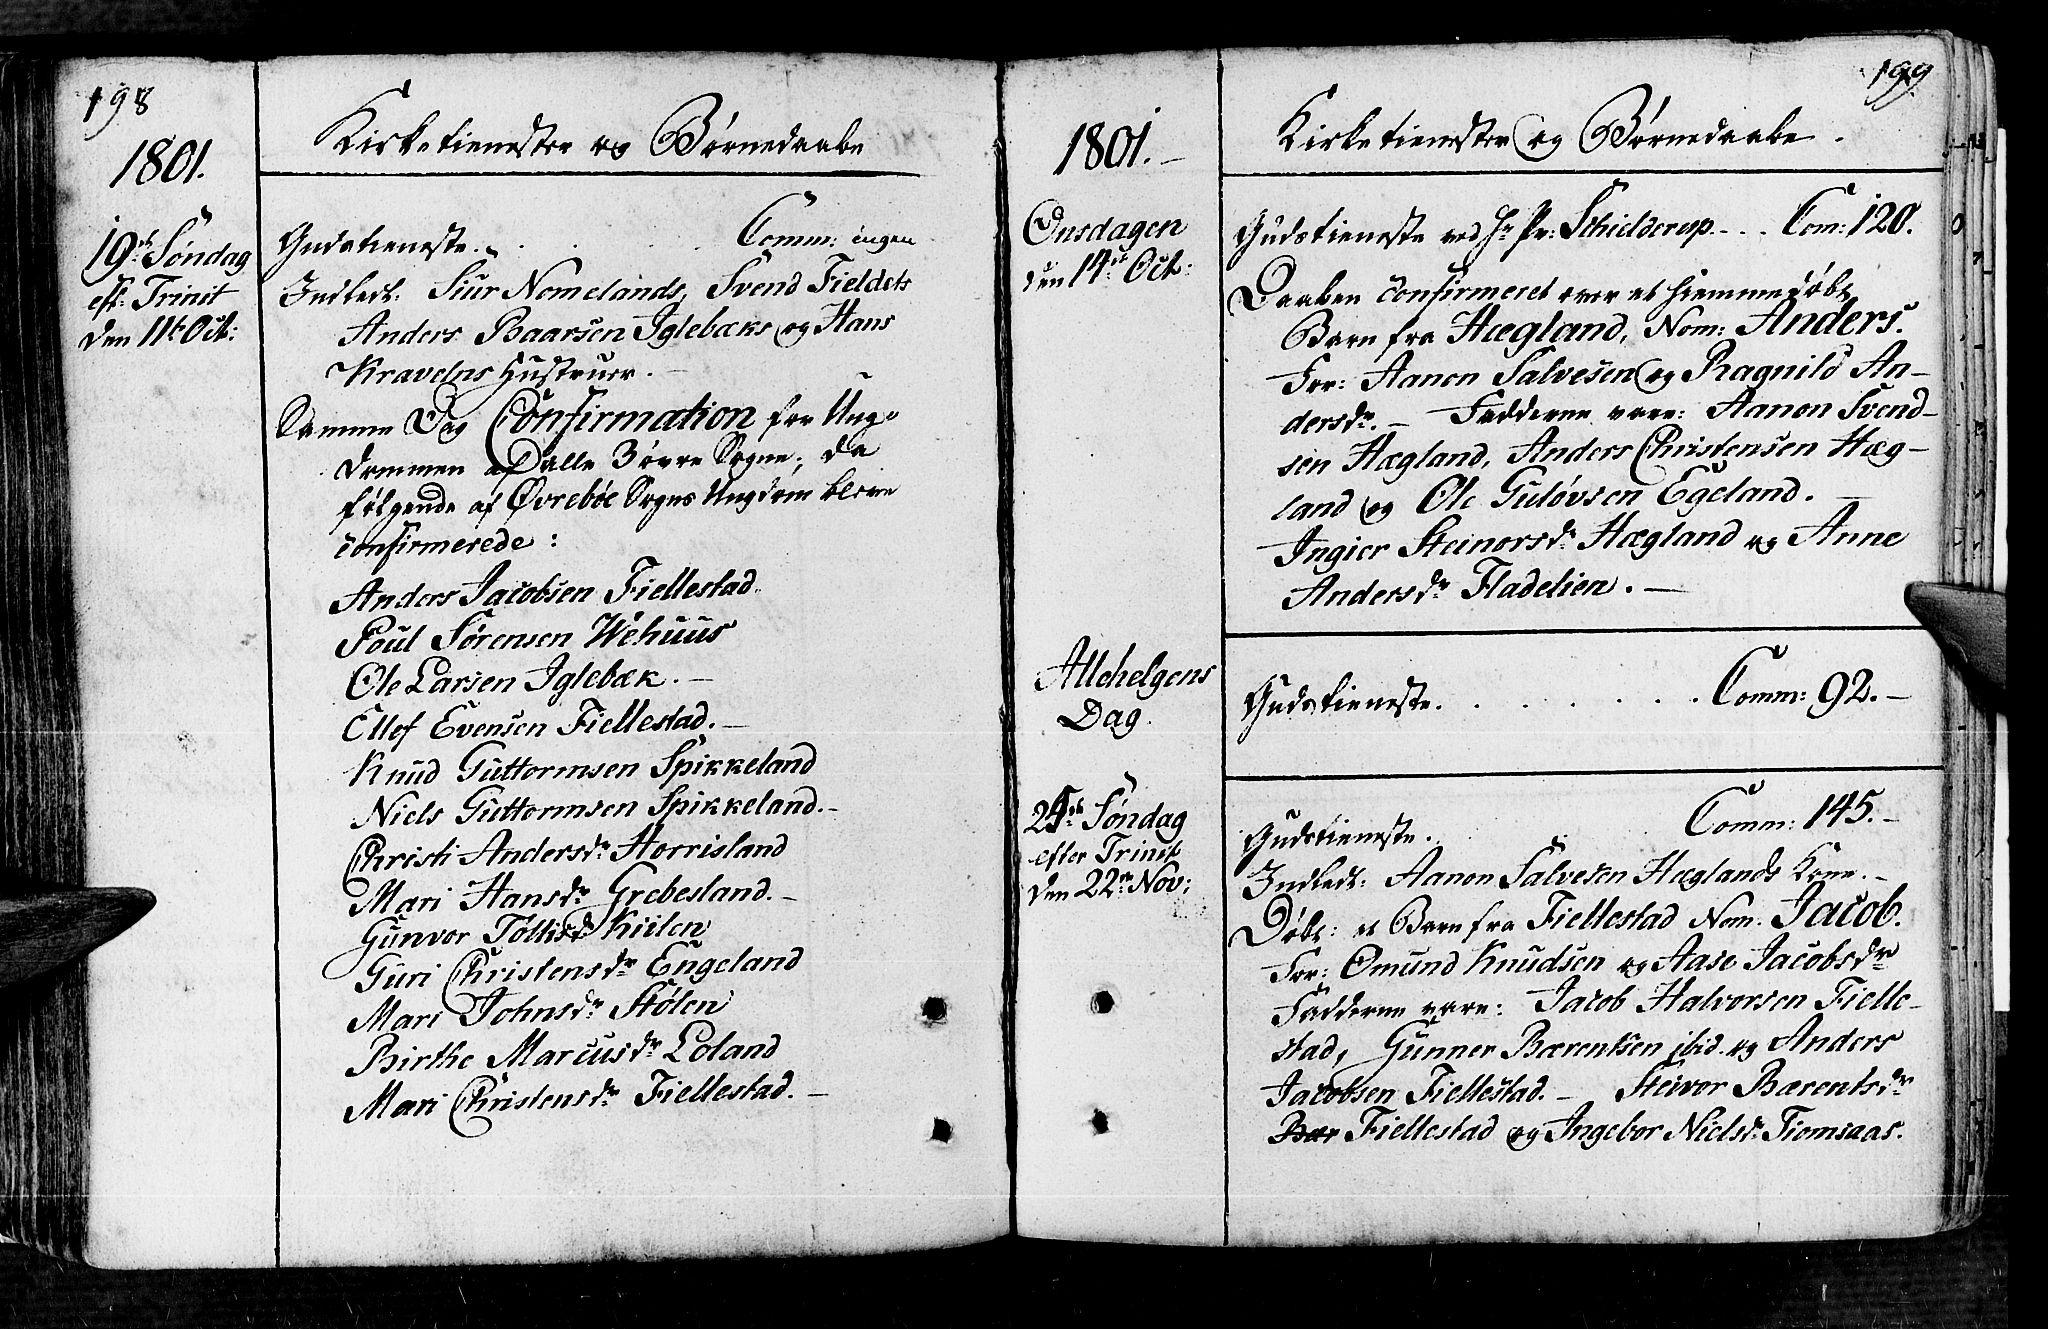 198
1801.
Kirketienester og Börnedaabe
19de Söndag
eft: Trinit
den 11te Oct:
Gudstieneste. . . . . Comm: ingen
Indledt: Siur Nomelands, Svend Fieldets
Anders Baarsen Iglebæks og Hans
Kravelns Hustruer. —
Samme Dag Confirmation for Ung-
dommen af alle 3 øvre Sogne, da
følgende af Øvrebøe Sogns Ungdom bleve
confirmerede:
Anders Jacobsen Fiellestad.
Poul Sørensen Wehuus
Ole Larsen Iglebæk. —
Ellef Evensen Fiellestad. —
Knud Guttormsen Spikkeland
Niels Guttormsen Spikkeland. —
Christi Andersdr Horrisland
Mari Hansdr Grebesland. —
Gunvor Tollisdr Kiilen
Guri Christensdr Engeland
Mari Johnsdr Stölen
Birthe Marcusdr Loland
Mari Christensdr Fiellestad. —
199
1801. —
Kirketienester og Børnedaabe.
Onsdagen
den 14de Oct:
Gudstieneste ved Hr Pr: Schielderup. . . . Com: 120.
Daaben confirmeret over et hiemmedøbt
Barn fra Hægland, Nom: Anders.
For: Aanon Salvesen og Ragnild An-
dersdr. — Fadderne vare: Aanon Svend-
sen Hægland, Anders Christensen Hæg-
land og Ole Guløvsen Egeland. —
Ingier Steinorsdr Hægland og Anne
Andersdr Fladelien. —
Allehelgens
Dag.
Gudstieneste. . . . . . . Comm: 92. —
25de Söndag
efter Trinit
den 22de Nov:
Gudstieneste. Comm: 145. —
Indledt: Aanon Salvesen Hæglands Kone. —
Døbt: et Barn fra Fiellestad Nom: Jacob.
For: Omund Knudsen og Aase Jacobsdr
Fadderne vare: Jacob Halvorsen Fielle-
stad, Gunner Bærentsen ibid. og Anders
Jacobsen Fiellestad. — Steivor Bærentsdr
Bær Fiellestad og Ingebor Nielsdr Tiomsaas.